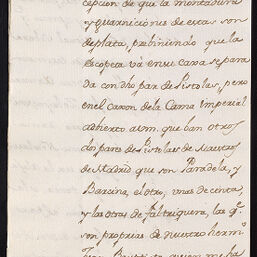 cepcion de que la montadura
y guarniciònes de estas son
de plata, prebiniendo que la
escopeta và en su caxa separa
da con dho par de Pistolas, pero
en el caxon dela Cama imperial
adherto a vm. que ban otros
dos pares de Pistolas de Maestros
de Madrid que son Paradela, y
Barcina, el otro, unas de cinta,
y las otras de faltriquera, las qe.
son proprias de nuestro hermo.